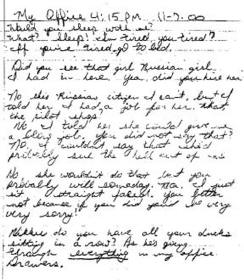 My Office 4:15 PM 11-7-00
Would you sleep with me?
What? Sleep! I'm tired, you tired?
If you're tired, go to bed.
Did you see that girl Russian girl
I had in here. Yea, did you hire her
No, she's Russian citizen I can't, but I
told her I had a job for her. What
the pilot shop?
No I told her she could give me
a blow job. You did not say that?
No, I wouldn't say that she'd
probably sue the hell out of me
No, she wouldn't do that but you
probably will someday. No, I just
sit straight faced. You better
not because if you did you'd be very
very sorry!
do you have all your ducks
sitting in a row? As he's going
through everything in my office
Drawers.